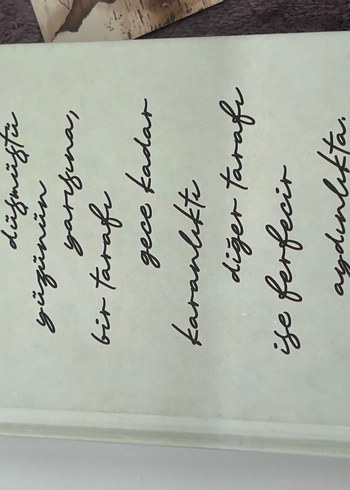 düşmüştü
yüzünün
yarısına,
bir tarafı
gece kadar
karanlıktı
diğer tarafı
ise ferfecir
aydınlıkta.